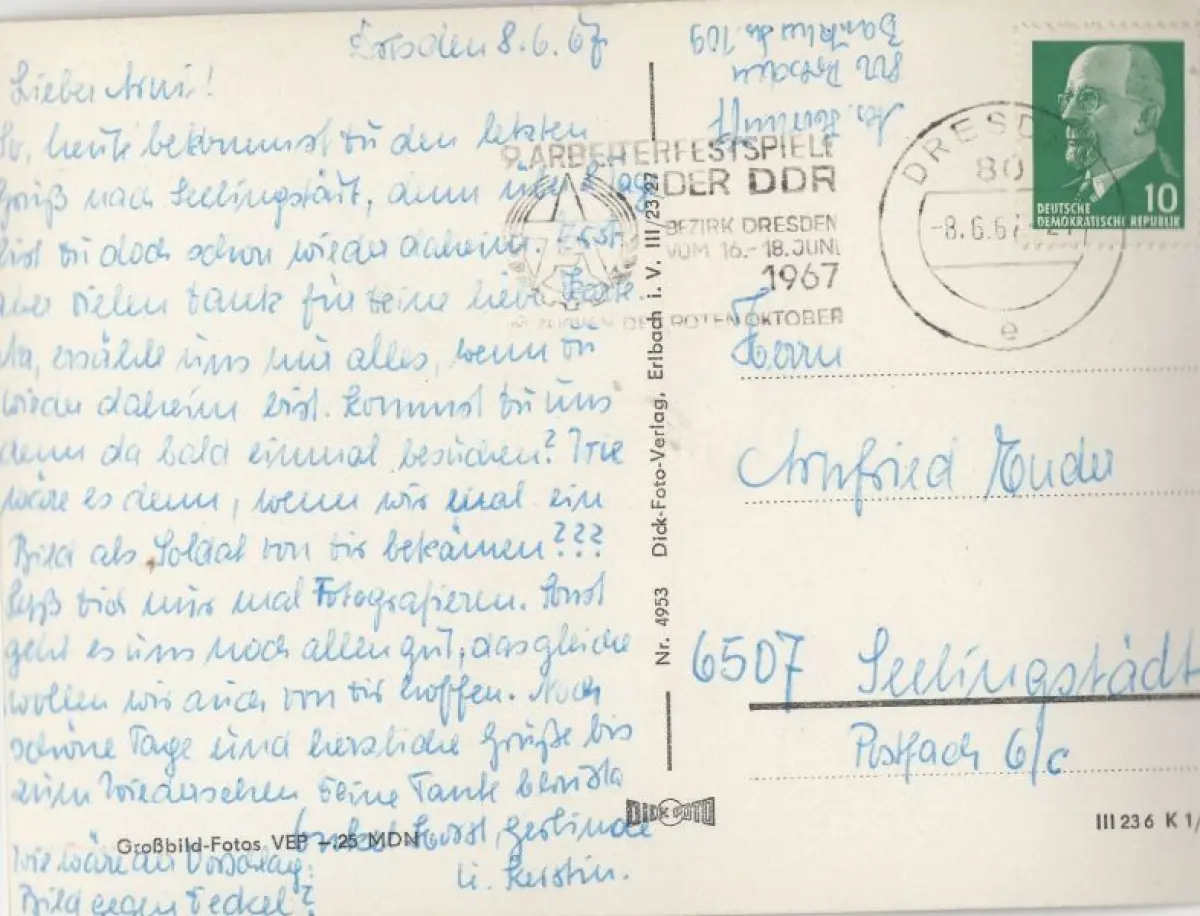 Dresden 8.6.67
Lieber Arni!
So, heute bekommst Du den letzten
Gruß nach Seelingstädt, denn
bist Du doch schon wieder daheim. Erst
aber vielen Dank für Deine liebe Karte.
Na, erzähle uns mir alles, wenn Du
wieder daheim bist. Kommst Du uns
denn da bald einmal besuchen? Wie
wäre es denn, wenn wir mal ein
Bild als Soldat von Dir bekämen???
Laß Dich nur mal Fotografieren. Sonst
geht es uns noch allen gut, dasgleiche
wollen wir auch von Dir hoffen. Noch
schöne Tage und herzliche Grüße bis
zum Wiedersehen Deine Tante
Onkel Horst, Gerlinde
u. Kerstin.
Wie wäre der Vorschlag:
Bild gegen Deckel?
Großbild-Fotos VEP -.25 MDN
Abs.
801 Dresden
109
9. ARBEITERFESTSPIELE
DER DDR
BEZIRK DRESDEN
VOM 16.-18. JUNI
1967
IM ZEICHEN DES ROTEN OKTOBER
DRESDEN
80
-8.6.67-21
e
DEUTSCHE
DEMOKRATISCHE REPUBLIK
10
Nr. 4953 Dick-Foto-Verlag, Erlbach i. V. III/23/27
DICK FOTO
Herrn
Arnfried Ender
6507 Seelingstädt
Postfach 6/c
III 23 6 K 1/